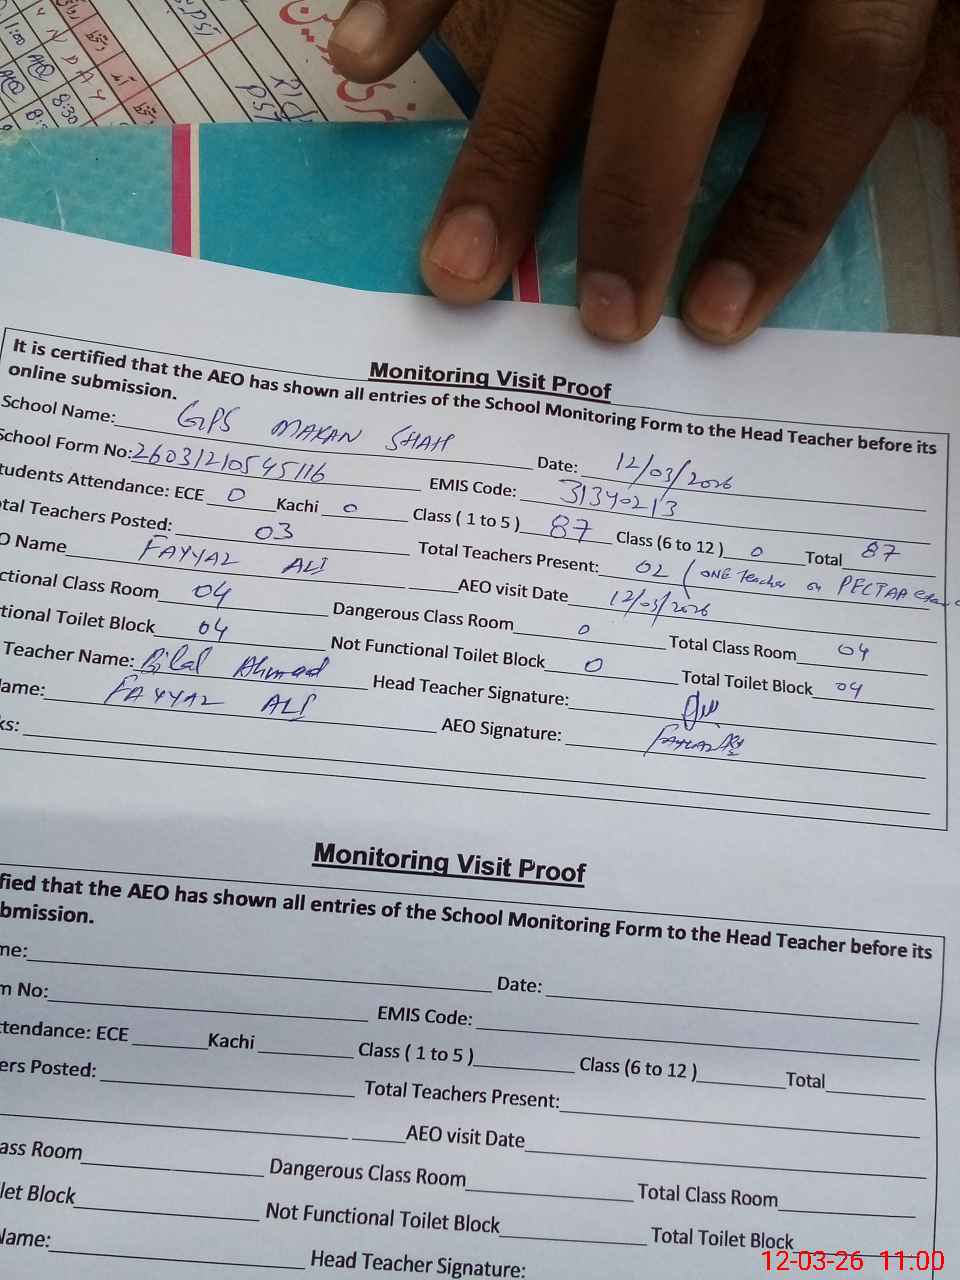 PST
1:00
8:30
Monitoring Visit Proof
It is certified that the AEO has shown all entries of the School Monitoring Form to the Head Teacher before its
online submission.
School Name: GPS MAKAN SHAH Date: 12/03/2026
School Form No: 26031210545116 EMIS Code: 31340213
tudents Attendance: ECE 0 Kachi 0 Class ( 1 to 5 ) 87 Class (6 to 12 ) 0 Total 87
tal Teachers Posted: 03 Total Teachers Present: 02 (ONE Teacher on PECTAA
O Name FAYYAZ ALI AEO visit Date 12/03/2026
ctional Class Room 04 Dangerous Class Room 0 Total Class Room 04
tional Toilet Block 04 Not Functional Toilet Block 0 Total Toilet Block 04
Teacher Name: Bilal Ahmad Head Teacher Signature:
lame: FAYYAZ ALI AEO Signature: FAYYAZ
ks:
Monitoring Visit Proof
fied that the AEO has shown all entries of the School Monitoring Form to the Head Teacher before its
bmission.
me: Date:
m No: EMIS Code:
ttendance: ECE Kachi Class ( 1 to 5 ) Class (6 to 12 ) Total
ers Posted: Total Teachers Present:
AEO visit Date
ass Room Dangerous Class Room Total Class Room
let Block Not Functional Toilet Block Total Toilet Block
lame: Head Teacher Signature:
12-03-26 11.00